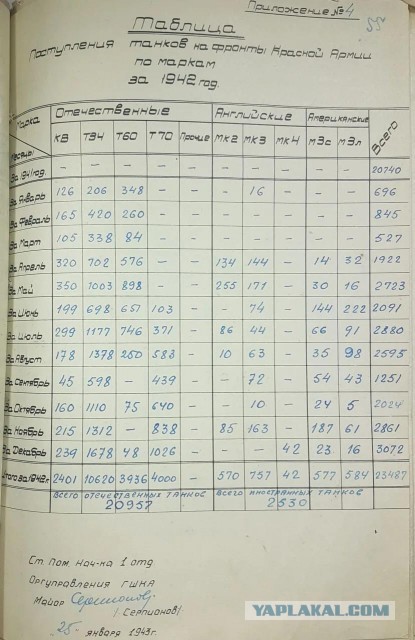 Приложение №4
Таблица
Поступления танков на фронты Красной Армии
по маркам
за 1942 год.
Марка Отечественные Английские Американские Всего
Месяцы КВ Т34 Т60 Т70 Прочие МК2 МК3 МК4 М3с М3л
За 1941 год. — — — — — — — — — — 20740
За Январь 126 206 348 — — — 16 — — — 696
За Февраль 165 420 260 — — — — — — — 845
За Март 105 338 84 — — — — — — — 527
За Апрель 320 702 576 — — 134 144 — 14 32 1922
За Май 350 1003 898 — — 255 171 — 30 16 2723
За Июнь 199 698 651 103 — — 74 — 144 222 2091
За Июль 299 1177 746 371 — 86 44 — 66 91 2880
За Август 178 1378 260 583 — 10 63 — 35 98 2595
За Сентябрь 45 598 — 439 — — 72 — 54 43 1251
За Октябрь 160 1110 75 640 — — 10 — 24 5 2024
За Ноябрь 215 1312 — 838 — 85 163 — 187 61 2861
За Декабрь 239 1678 48 1026 — — — 42 23 16 3072
Итого за 1942 г. 2401 10620 3936 4000 — 570 757 42 577 584 23487
Всего отечественных танков Всего иностранных танков
20957 2530
Ст. Пом. Нач-ка 1 отд
Оргуправления ГШКА
Майор
/Серпионов/
25 января 1943 г.
YAPLAKAL.COM